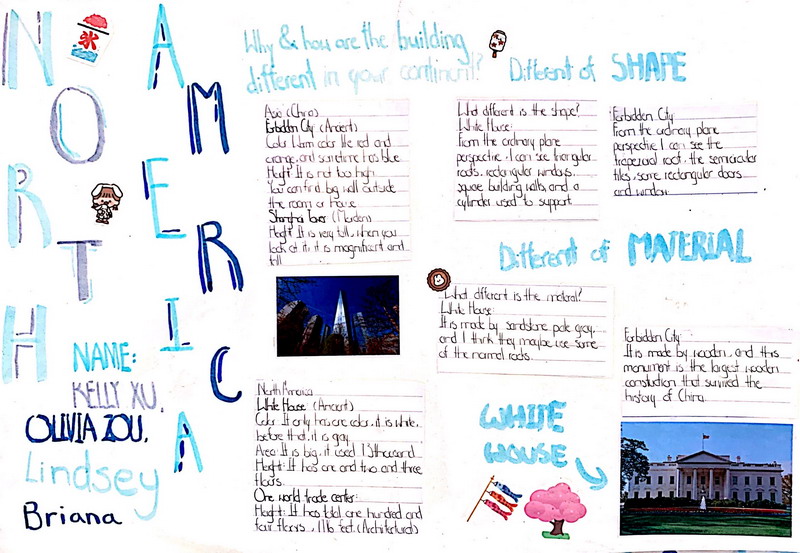 NORTH
AMERICA
NAME:
KELLY XU.
OLIVIA ZOU.
Lindsey
Briana
Why & how are the building
different in your continent?
Asia (China)
Forbidden City (Ancient)
Color: Warm color like red and
orange, and sometime has blue.
Height: It is not too high.
You can find big wall outside
the room or house.
Shanghai Tower (Mordern)
Height: It is very tall, when you
look at it, it is magnificent and
tall.
North America
White House (Ancient)
Color: It only has are color, it is white,
before that, it is gray.
Area: It is big, it used 73thousand
Height: It has one and two and three
floors.
One world trade center:
Height: It has total one hundred and
four floors, 1776 feet. (Architectures)
Different of SHAPE
What different is the shape?
White House:
From the ordinary plane
perspective, I can see triangular
roofs, rectangular windows,
square building walls and a
cylinder used to support.
Forbidden City
From the ordinary plane
perspective I can see the
trapezoidal roof, the semicircular
tiles, some rectangular doors
and window.
Different of MATERIAL
What different is the material?
White House:
It is made by sandstone pale gray,
and I think they maybe use some
of the normal rocks.
Forbidden City:
It is made by wooden, and this
monument is the largest wooden
constuction that survived the
history of China.
WHITE
HOUSE